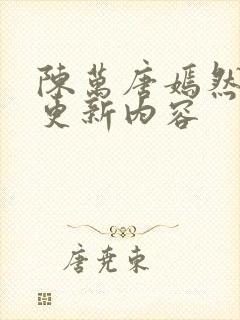 陳萬唐嫣然
更新内容
唐尭東